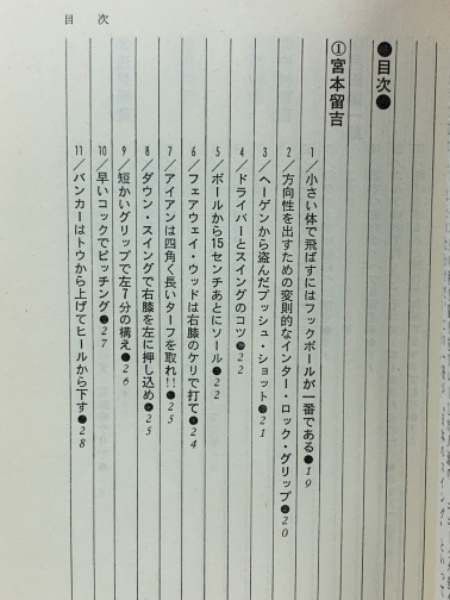 目次
●目次●
①宮本留吉
1／小さい体で飛ばすにはフックボールが一番である●19
2／方向性を出すための変則的なインター・ロック・グリップ●20
3／ヘーゲンから盗んだプッシュ・ショット●21
4／ドライバーとスイングのコツ●22
5／ボールから15センチあとにソール●22
6／フェアウェイ・ウッドは右膝のケリで打て●24
7／アイアンは四角く長いターフを取れ!!●25
8／ダウン・スイングで右膝を左に押し込め●25
9／短かいグリップで左7分の構え●26
10／早いコックでピッチング●27
11／バンカーはトウから上げてヒールから下す●28